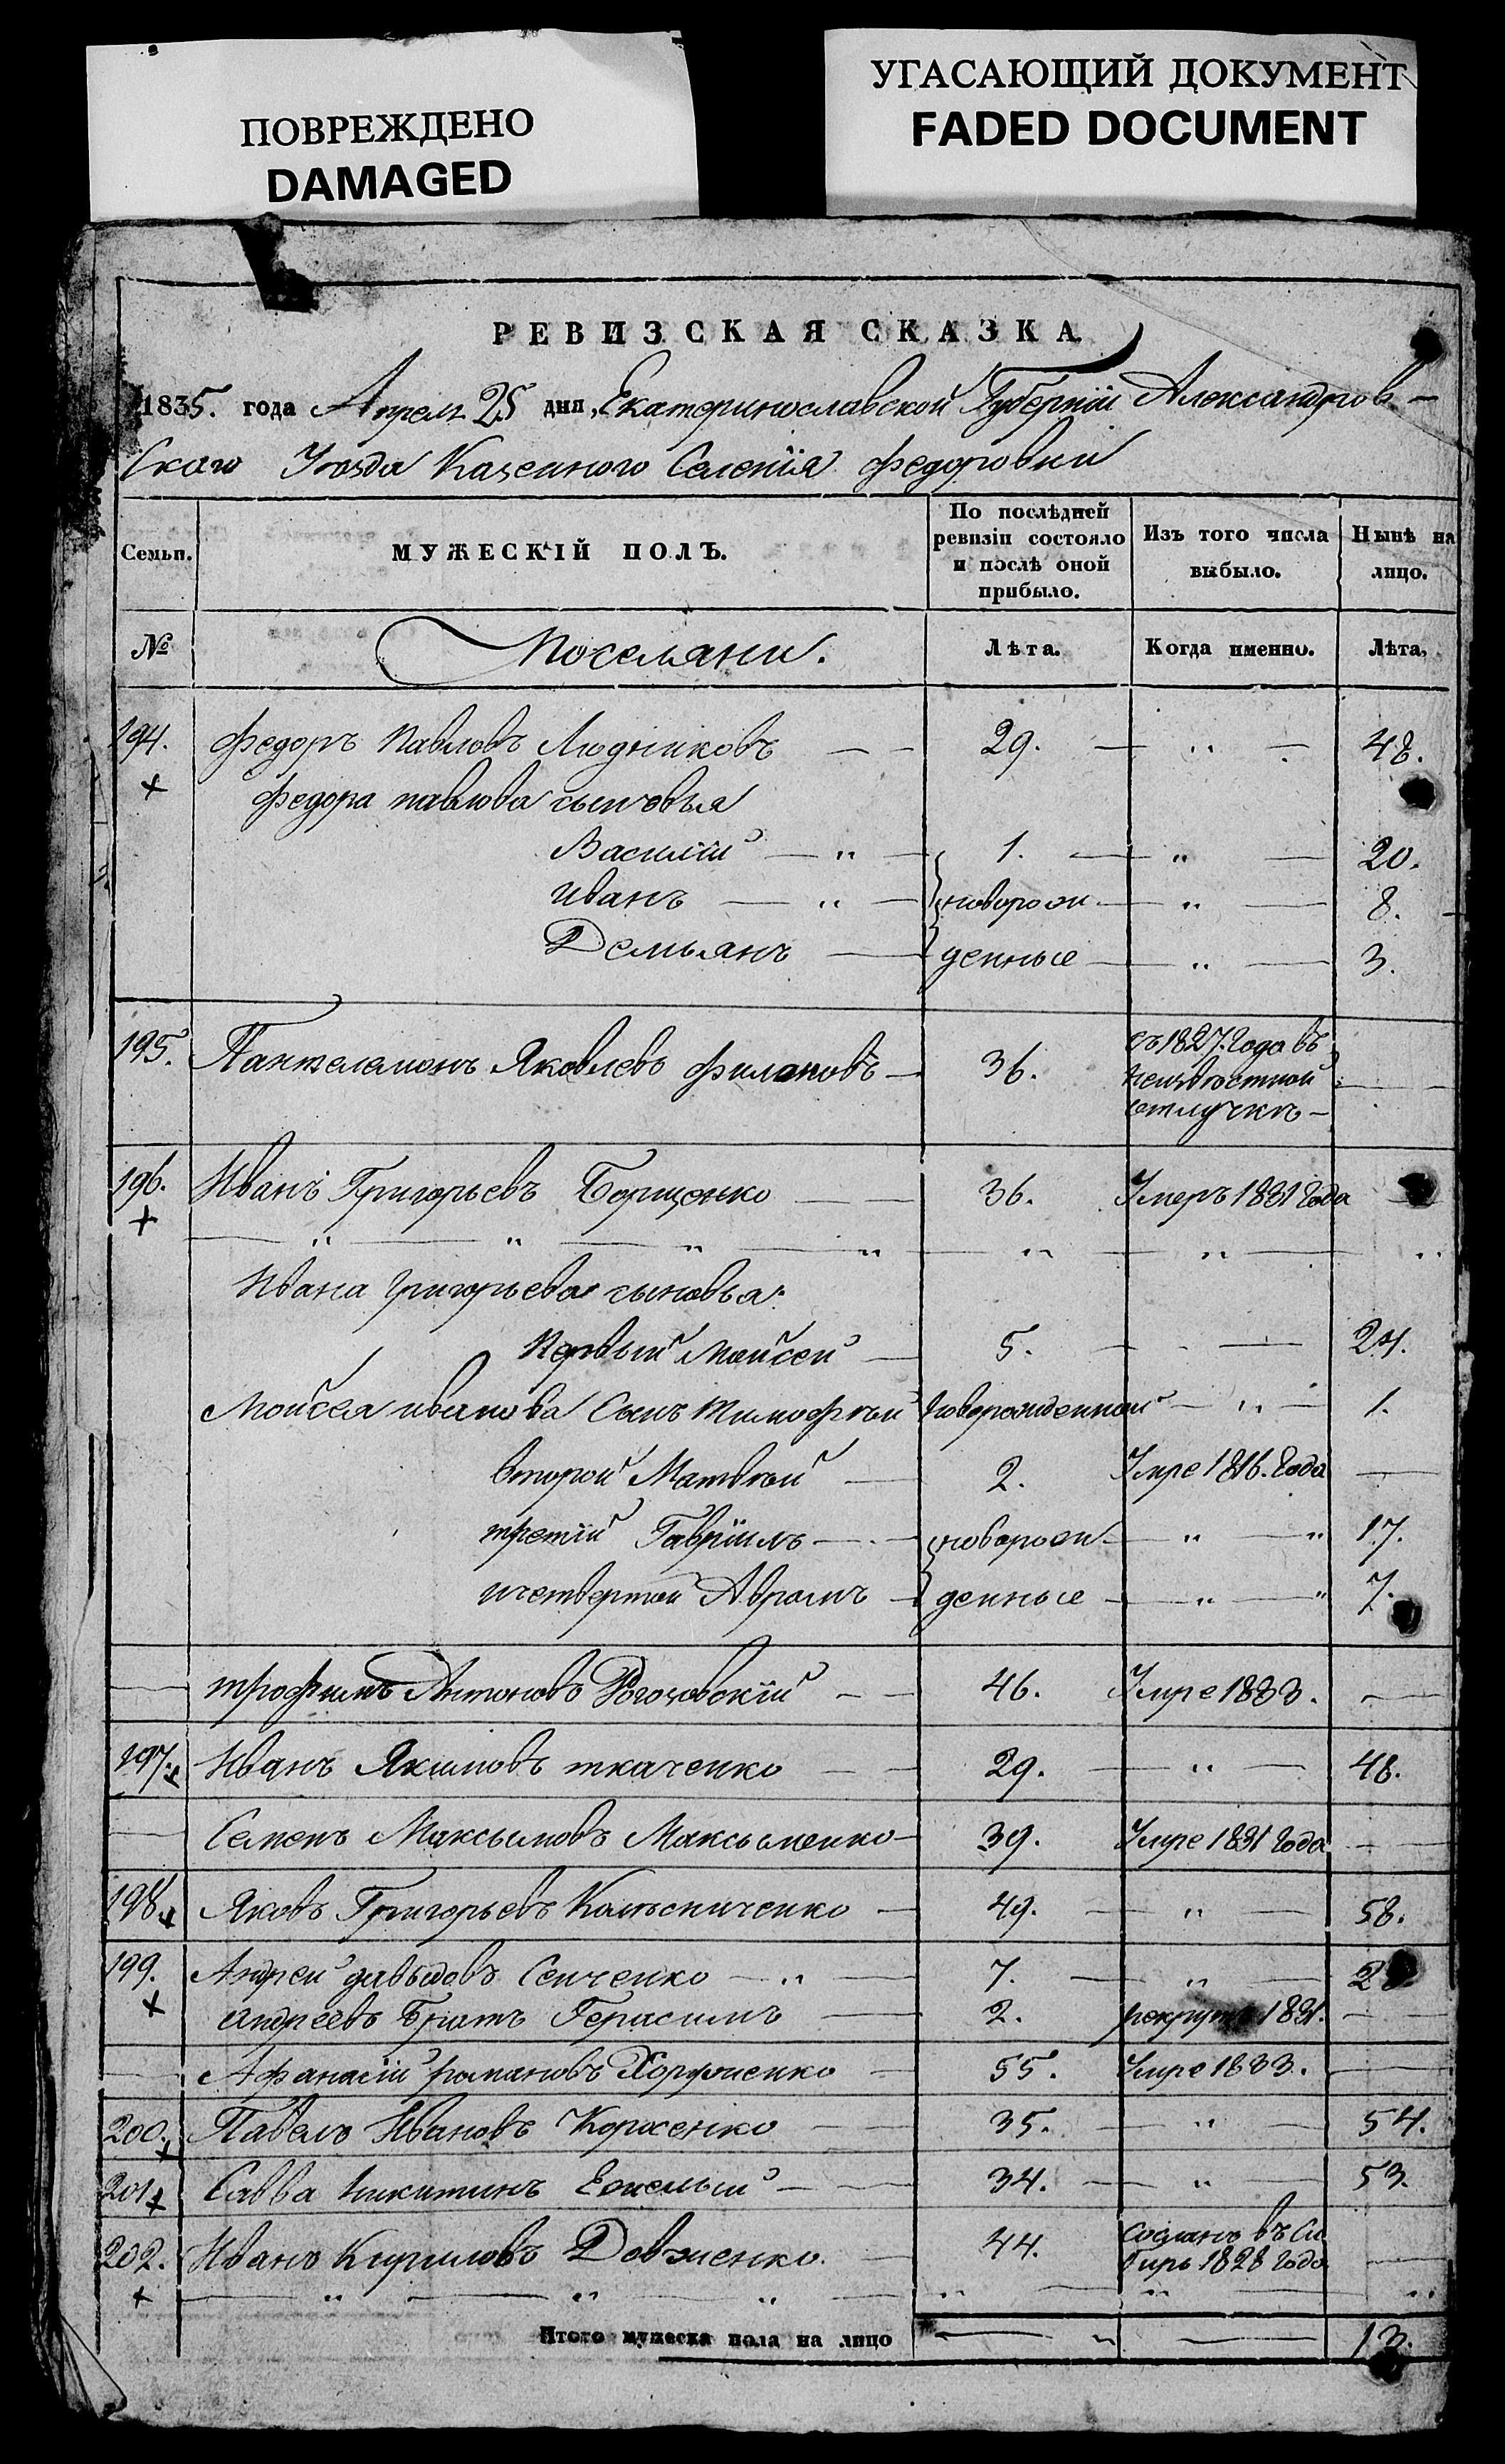 ПОВРЕЖДЕНО
DAMAGED
УГАСАЮЩИЙ ДОКУМЕНТ
FADED DOCUMENT
РЕВИЗСКАЯ СКАЗКА
1835. года Апреля 25 дня, Екатеринославской Губерніи Александров-
скаго Уезда Казенного Селенія Федоровки
Семьи. МУЖЕСКІЙ ПОЛЪ. По послѣдней ревизіи состояло и послѣ оной прибыло. Изъ того числа выбыло. Нынѣ на лицо.
№ Поселяни. Лѣта. Когда именно. Лѣта,
194. Федоръ Павловъ Людниковъ — — 29. — „ — 48.
+ Федора павлова сыновья
Василій — „ — 1. — „ — 20.
Иванъ — „ — новорож — „ — 8.
Демьянъ — денные — „ — 3.
195. Пантелемонъ Яковлевъ Филоновъ — 36. съ 1827. Года въ неизвѣстной отлучкѣ — —
196. Иванъ Григорьевъ Борщенко — 36. Умеръ 1831 Года
+ — „ — „ — „ — „ — „ — „ — „
Ивана Григорьева сыновья:
Первый Мойсей — 5. — - — 24.
Мойсея иванова Сынъ тимофѣй новорожденный — „ — 1.
второй Матвѣй — 2. Умре 1816. Года —
третій Гавріилъ — - — новорож — „ — „ 17.
ичетвертой Аврамъ — денные — „ — „ 7.
— трофимъ Антоновъ Рогозовскій — — 46. Умре 1833. —
197. + Иванъ Якимовъ ткаченко — — 29. — „ — 48.
— Семенъ Максымовъ Максыменко — 39. Умре 1831 Года —
198. + Яковъ Григорьевъ Колѣсниченко — 49. — „ — 58.
199. Андрей давыдовъ Сенченко — „ — 7. — „ — 2
+ андреевъ Братъ Герасимъ — 2. рекрутъ 1831. —
— Афанасій романовъ Хорунженко — 55. Умре 1833. —
200. + Павелъ Ивановъ Корженко — 35. — „ — 54.
201 + Савва никитинъ — — 34. — „ — 53.
202. Иванъ Кириловъ Довженко. — 44. Сосланъ въ Си биръ 1828 Года —
+ — „ — „ — „ — „ — „ — „
Итого мужеска пола на лицо — „ — 13.